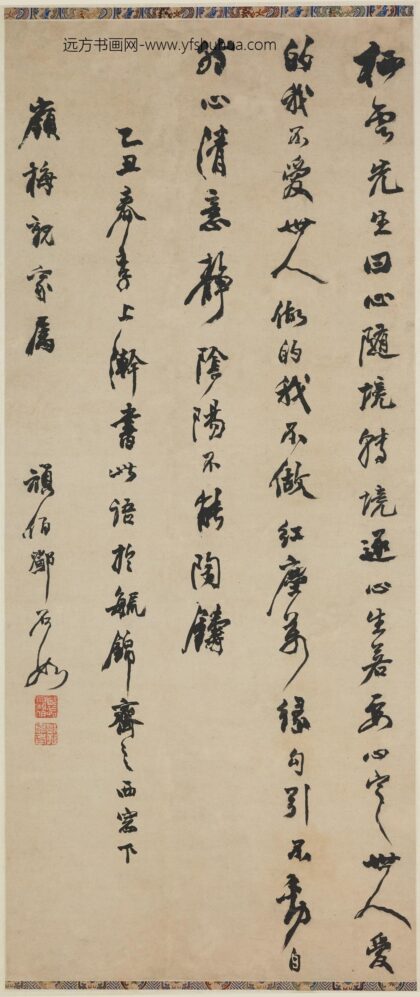 远方书画网-www.yfshuhua.com
栖雲先生曰心隨境轉境逐心生若要心定世人愛
的我不愛世人做的我不做紅塵萬緣勾引不動自
然心清意靜陰陽不能陶鑄
乙丑春季上澣書此語於毓錦齋之西窓下
嶺梅親家屬 頑伯鄧石如